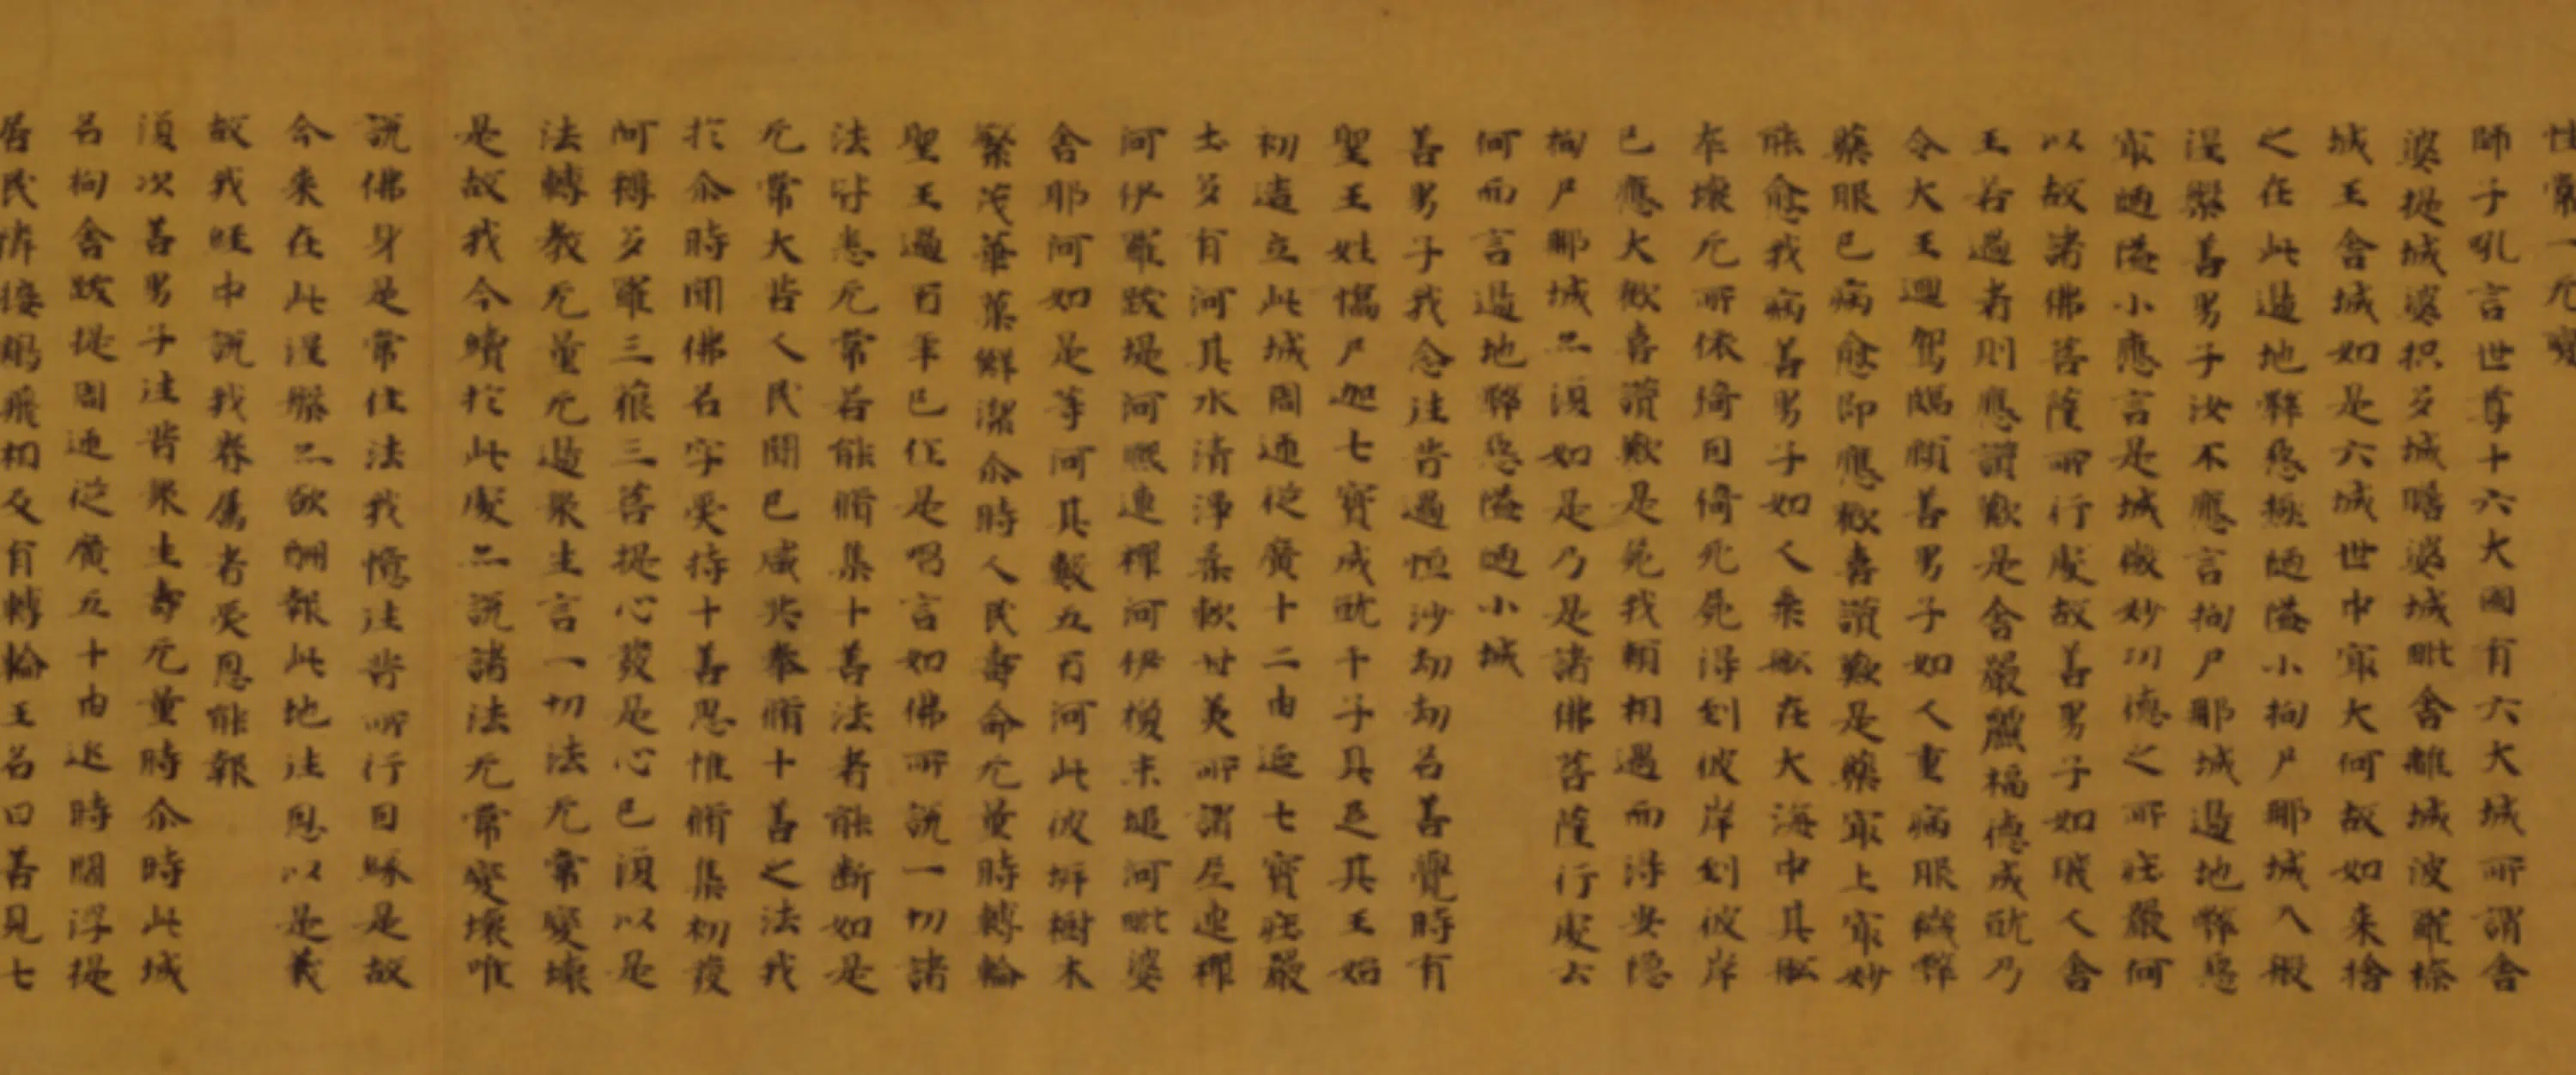 性常一无變
師子吼言世尊十六大國有六大城所謂舍
婆提城婆枳多城瞻婆城毗舍離城波羅㮈
城王舍城如是六城世中㝡大何故如来捨
之在此邊地弊惡極陋隘小拘尸那城入般
涅槃善男子汝不應言拘尸那城邊地弊惡
㝡陋隘小應言是城微妙功德之所莊嚴何
以故諸佛菩薩所行處故善男子如賎人舍
王若過者則應讃歎是舍嚴麗福德成就乃
令大王迴駕臨顧善男子如人重病服穢弊
藥服已病愈即應歡喜讃歎是藥㝡上㝡妙
能愈我病善男子如人乘舩在大海中其舩
卒壞无所依倚因倚死屍得到彼岸到彼岸
已應大歡喜讃歎是屍我賴相遇而得安隱
拘尸那城亦復如是乃是諸佛菩薩行處云
何而言邊地弊惡隘陋小城
善男子我念往昔過恒沙劫劫名善覺時有
聖王姓憍尸迦七寶成就千子具足其王始
初造立此城周迊從廣十二由延七寶莊嚴
土多有河其水清淨柔軟甘美所謂尼連禪
河伊羅跋提河熈連禪河伊搜末堤河毗婆
舍耶河如是等河其數五百河此彼岸樹木
繁茂華菓鮮潔尒時人民壽命无量時轉輪
聖王過百年已作是唱言如佛所說一切諸
法皆悉无常若能脩集十善法者能断如是
无常大苦人民聞已咸共奉脩十善之法我
於尒時聞佛名字受持十善思惟脩集初發
阿耨多羅三藐三菩提心發是心已復以是
法轉教无量无邊衆生言一切法无常變壞
是故我今續於此處亦說諸法无常變壞唯
說佛身是常住法我憶往昔所行因緣是故
今来在此涅槃亦欲酬報此地往恩以是義
故我経中說我眷属者受恩能報
復次善男子往昔衆生壽无量時尒時此城
名拘舍跋提周迊從廣五十由延時閻浮提
居民隣接鷄飛相及有轉輪王名曰善見七